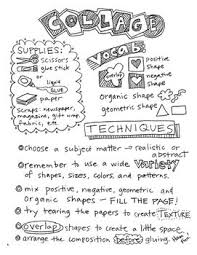 COLLAGE
SUPPLIES:
Scissors
glue stick
or
liquid
GLUE
paper
Scraps: newspaper,
magazine, gift wrap,
fabric, etc
Vocab
overlap
positive
shape
negative
shape
organic shape
geometric shape
TECHNIQUES
choose a subject matter → realistic or
abstract
remember to use a wide Variety
of shapes, sizes, colors, and patterns.
mix positive, negative, geometric and
organic shapes — FILL THE PAGE!
try tearing the papers to create TEXTURE
overlap shapes to create a little space
arrange the composition before gluing. Have
Fun!